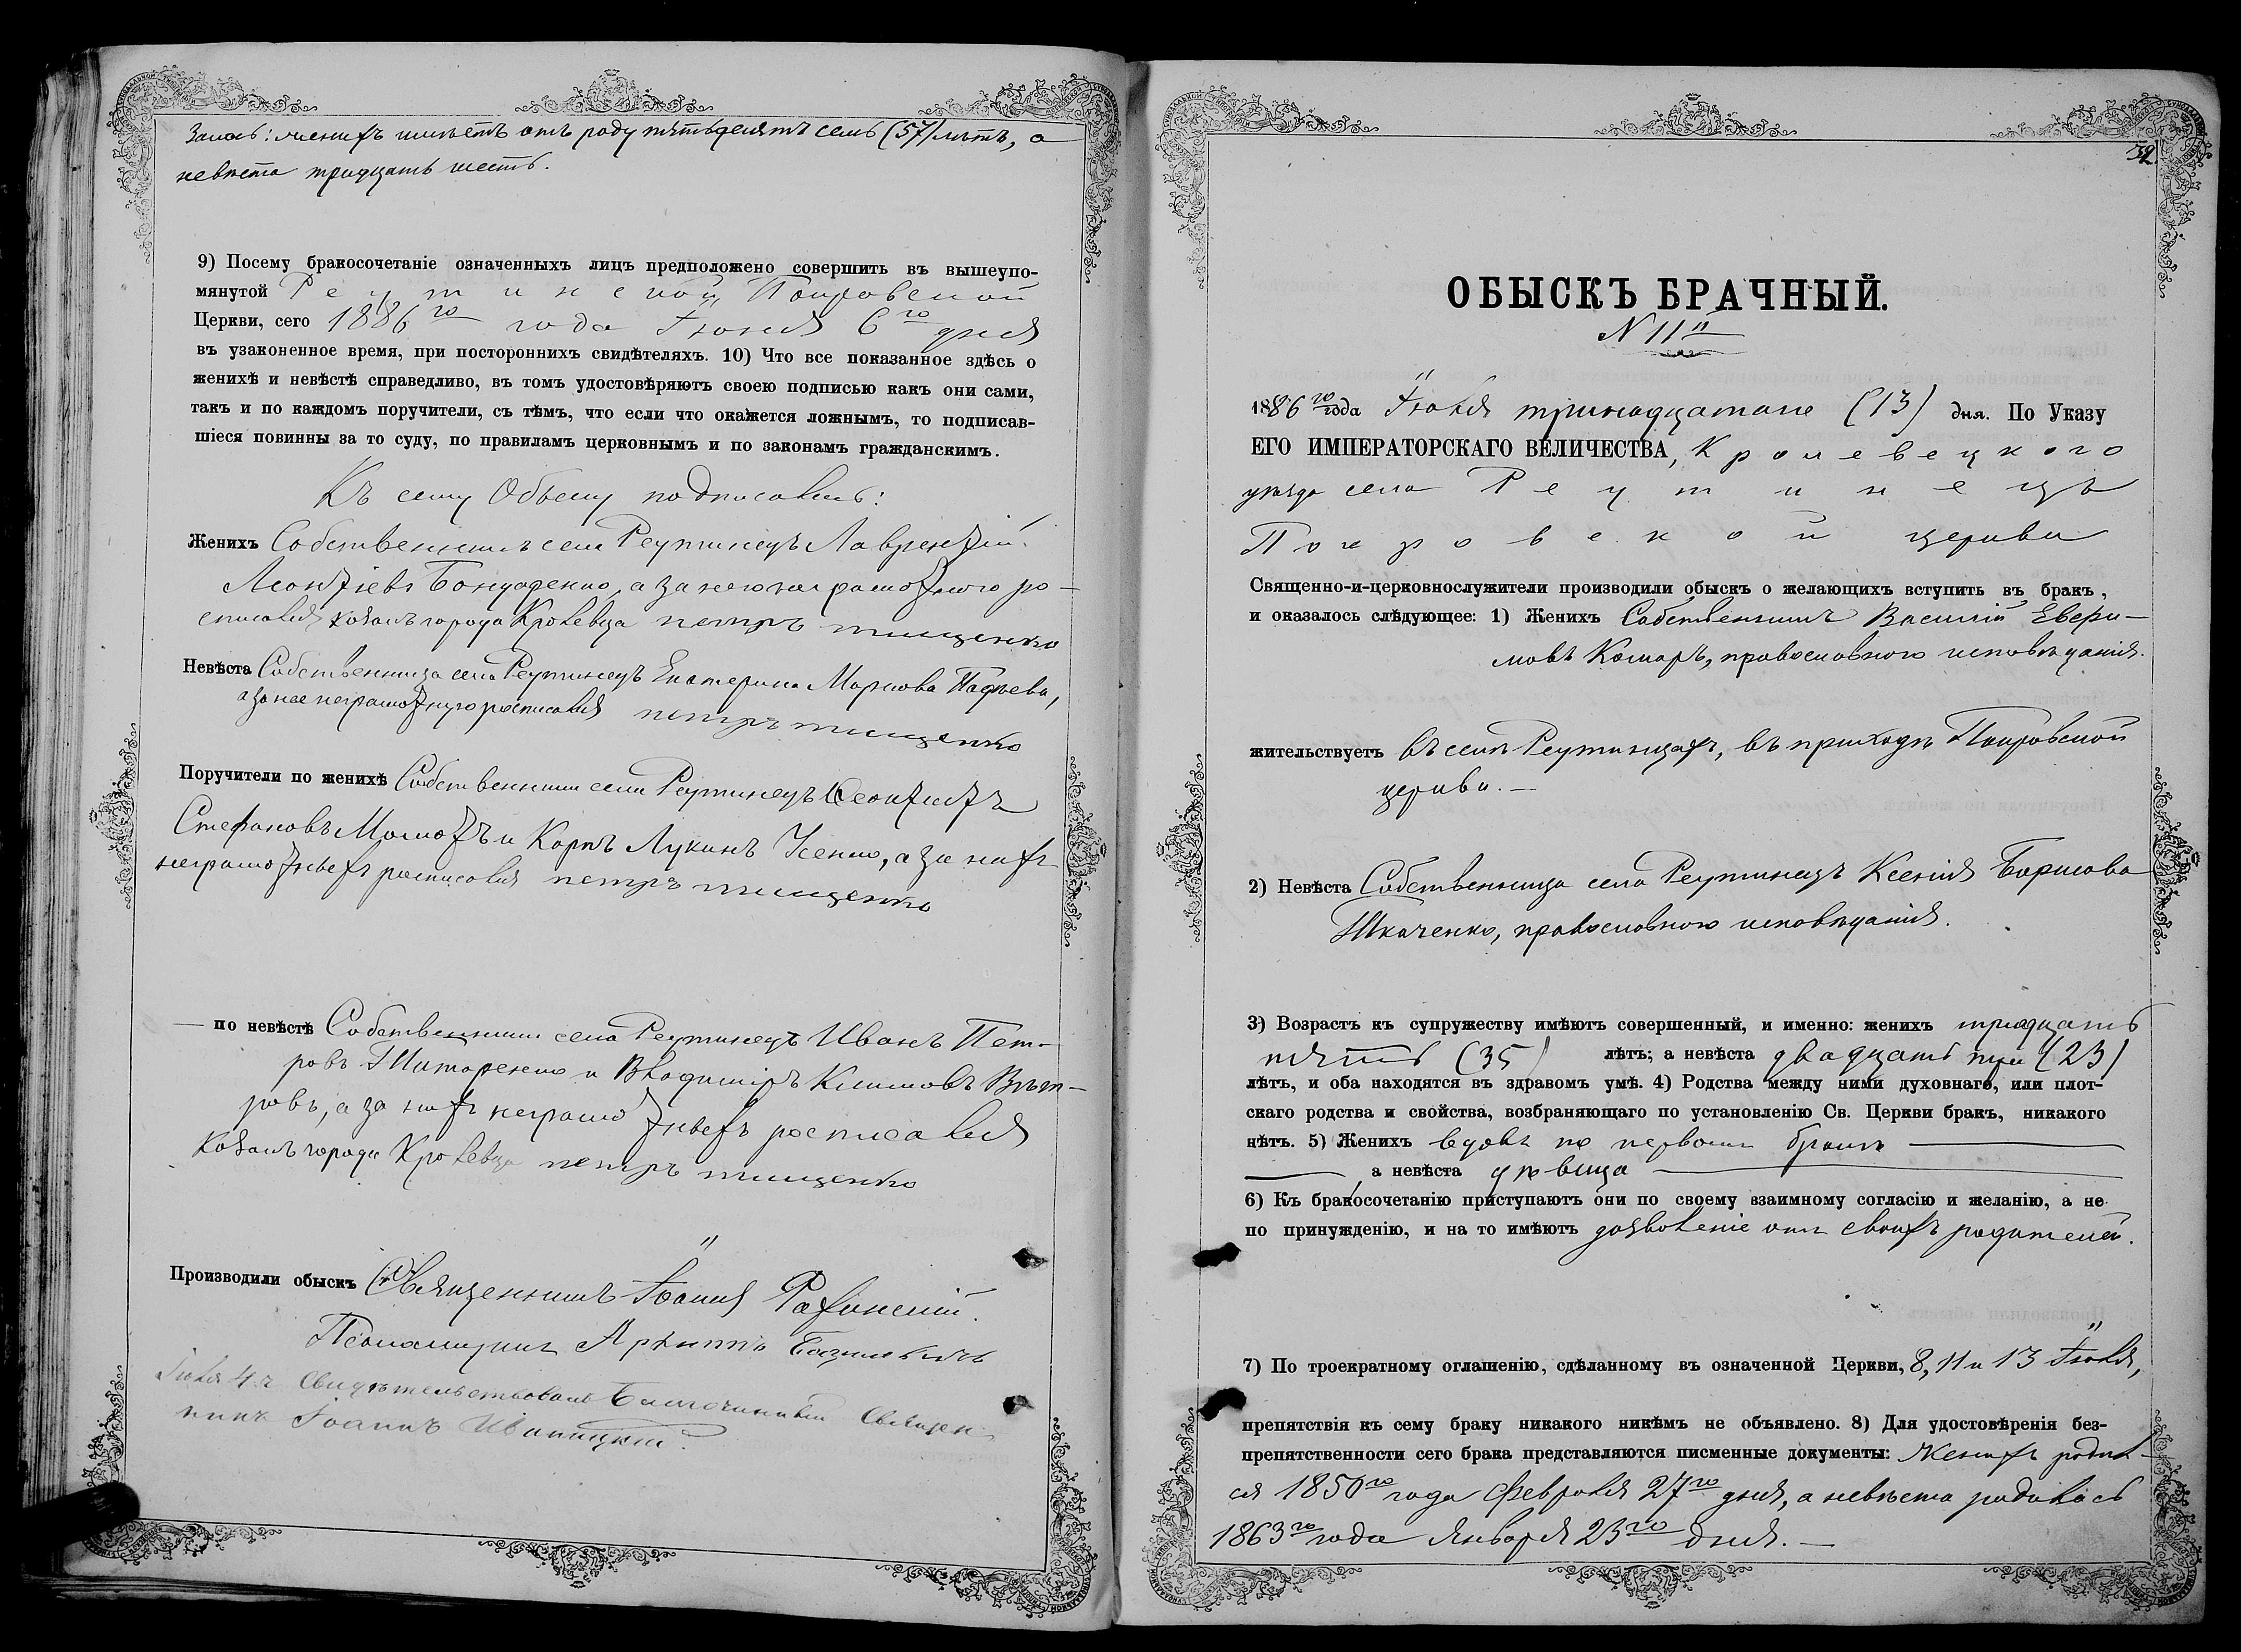 залось: женихъ имѣетъ отъ роду пятьдесятъ семь (57) лѣтъ, а
невѣста тридцать шесть.
9) Посему бракосочетаніе означенныхъ лицъ предположено совершить въ вышеупо-
мянутой Реутинской Покровской
Церкви, сего 1886го года Іюня 6го дня
въ узаконенное время, при постороннихъ свидѣтеляхъ. 10) Что все показанное здѣсь о
женихѣ и невѣстѣ справедливо, въ томъ удостовѣряютъ своею подписью какъ они сами,
такъ и по каждомъ поручители, съ тѣмъ, что если что окажется ложнымъ, то подписав-
шіеся повинны за то суду, по правиламъ церковнымъ и по законамъ гражданскимъ.
Къ сему Обыску подписались:
Женихъ Собственникъ села Реутинецъ Лаврентій
Леонтіевъ Бондаренко, а за него неграмотнаго ро-
списался козакъ города Кролевца петръ тищенко
Невѣста Собственница села Реутинецъ Екатерина Маркова
а за нее неграмотную росписался петръ тищенко
Поручители по женихѣ Собственники села Реутинецъ
Стефановъ и Карпъ Лукинъ Усенко, а за нихъ
неграмотныхъ росписался петръ тищенко
— по невѣстѣ Собственники села Реутинецъ Иванъ Пет-
ровъ Титаренко и Владиміръ Климовъ Вѣт-
ровъ, а за нихъ неграмотныхъ росписался
козакъ города Кролевца петръ тищенко
Производили обыскъ Священникъ Іоаннъ
Псаломщикъ
Свидѣтельствовалъ Благочинный Священ-
никъ Іоаннъ
32
ОБЫСКЪ БРАЧНЫЙ.
N 11й
1886го года Іюля тринадцатаго (13) дня. По Указу
ЕГО ИМПЕРАТОРСКАГО ВЕЛИЧЕСТВА, Кролевецкого
уѣзда села Реутинецъ
Покровской церкви
Священно-и-церковнослужители производили обыскъ о желающихъ вступить въ бракъ,
и оказалось слѣдующее: 1) Женихъ Собственникъ Василій Евфи-
мовъ Комаръ, православного исповѣданія.
жительствуетъ въ селѣ Реутинцахъ, въ приходѣ Покровской
церкви. —
2) Невѣста Собственница села Реутинецъ Ксенія Борисова
Ткаченко, православного исповѣданія.
3) Возрастъ къ супружеству имѣютъ совершенный, и именно: женихъ тридцать
пять (35) лѣтъ; а невѣста двадцать три (23)
лѣтъ, и оба находятся въ здравомъ умѣ. 4) Родства между ними духовнаго, или плот-
скаго родства и свойства, возбраняющаго по установленію Св. Церкви бракъ, никакого
нѣтъ. 5) Женихъ вдовъ по первомъ бракѣ
, а невѣста дѣвица
6) Къ бракосочетанію приступаютъ они по своему взаимному согласію и желанію, а не
по принужденію, и на то имѣютъ дозволеніе отъ своихъ родителей.
7) По троекратному оглашенію, сдѣланному въ означенной Церкви, 8, 11 и 13 Іюля,
препятствія къ сему браку никакого никѣмъ не объявлено. 8) Для удостовѣренія без-
препятственности сего брака представляются писменные документы: Женихъ родил-
ся 1850го года Февраля 27го дня, а невѣста родилась
1863го года Января 23го дня. —